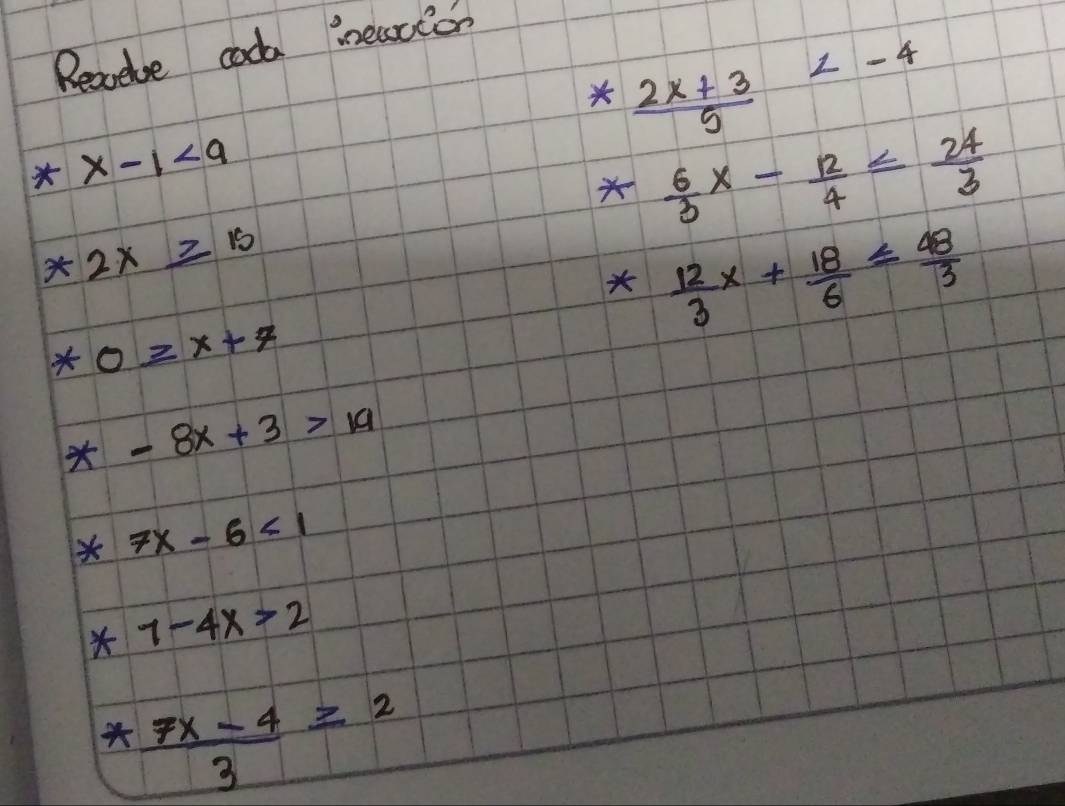 Resuelve cada inecuación
* x - 1 < 9
* 2x ≥ 15
* 0 ≥ x + 7
* - 8x + 3 > 19
* 7x - 6 < 1
* 1 - 4x > 2
* (7x - 4)/3 ≥ 2
* (2x + 3)/5 < -4
* 6/3 x - 12/4 ≤ 24/3
* 12/3 x + 18/6 ≤ 48/3